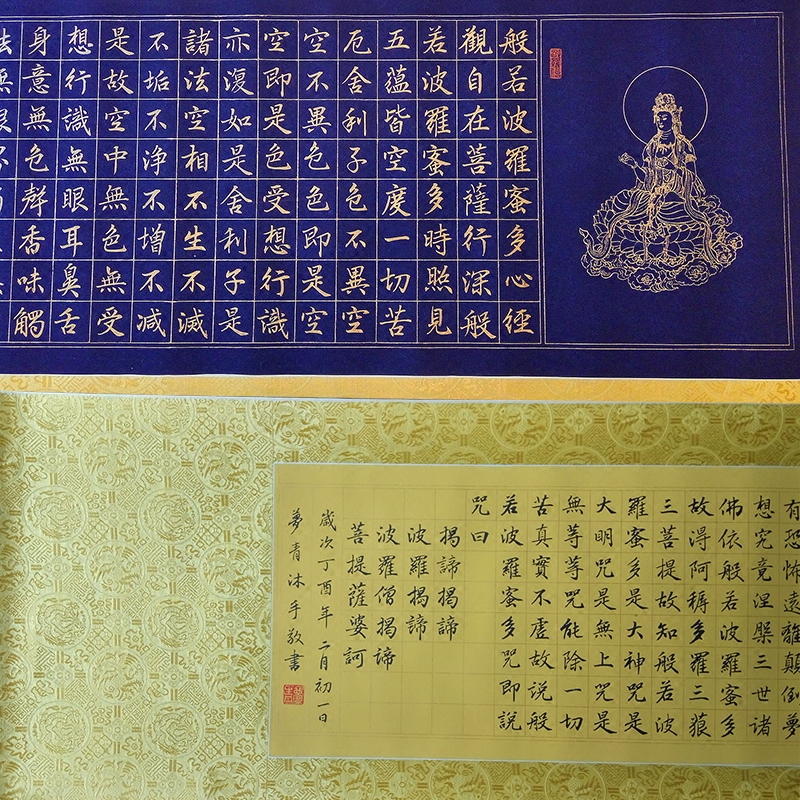 般若波羅蜜多心經
觀自在菩薩行深般
若波羅蜜多時照見
五蘊皆空度一切苦
厄舍利子色不異空
空不異色色即是空
空即是色受想行識
亦復如是舍利子是
諸法空相不生不滅
不垢不净不增不减
是故空中無色無受
想行識無眼耳鼻舌
身意無色聲香味觸
有恐怖遠離顛倒夢
想究竟涅槃三世諸
佛依般若波羅蜜多
故得阿耨多羅三藐
三菩提故知般若波
羅蜜多是大神咒是
大明咒是無上咒是
無等等咒能除一切
苦真實不虛故説般
若波羅蜜多咒即説
咒曰
揭諦揭諦
波羅揭諦
波羅僧揭諦
菩提薩婆訶
歲次丁酉年二月初一日
夢青沐手敬書